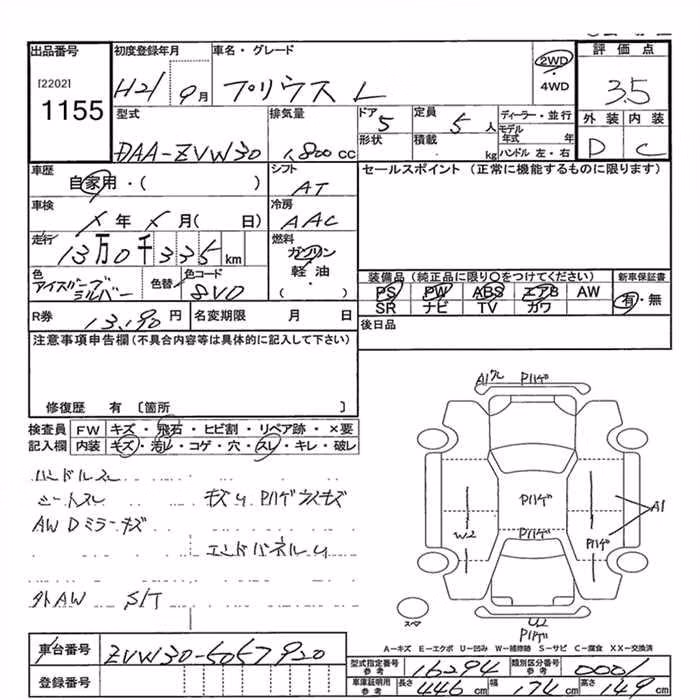 出品番号 初度登録年月 車名・グレード 2WD 4WD 評価点
[2202] 1155 H21 9月 プリウス L 3.5
型式 排気量 ドア 5 定員 5人 ディーラー・並行 外装 内装
形状 積載 kg モデル年式 年 ハンドル 左・右
DAA-ZVW30 1,800cc D C
車歴 シフト セールスポイント (正常に機能するものに限ります)
自家用・( ) AT
車検 冷房
年 月( 日) AAC
走行 13万0千335km 燃料 ガソリン
色 アイスバーグシルバー 色替 色コード 8V0 軽油・( )
装備品(純正品に限り○をつけてください) 新車保証書
PS PW ABS エアB AW 有・無
SR ナビ TV カワ
R券 13,190円 名変期限 月 日 後日品
注意事項申告欄(不具合内容等は具体的に記入して下さい)
修復歴 有 〔箇所 〕
検査員 FW キズ・飛石・ヒビ割・リペア跡・×要
記入欄 内装 キズ・汚レ・コゲ・穴・スレ・キレ・破レ
ハンドルスレ
シートスレ
AW Dミラーキズ
エンドパネルU
外AW S/T
A1 PハゲPハゲ
Pハゲ
Pハゲ
W2 Pハゲ A1
U2
Pハゲ
スペア
A-キズ E-エクボ U-凹み W-補修跡 S-サビ C-腐食 XX-交換済
車台番号 ZVW30-5057920
登録番号
型式指定番号 参考 16294 類別区分番号 参考 0001
車庫証明用 参考 長さ 446cm 幅 174cm 高さ 149cm